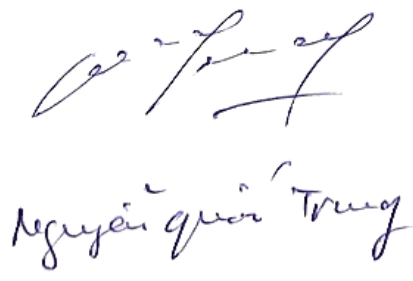 Nguyễn Quốc Trung